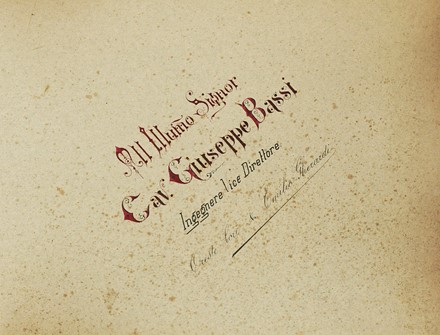 All'Illumo Signor
Cav. Giuseppe Bassi
Ingegnere Vice Direttore
Oreste & Emilio Gherardi